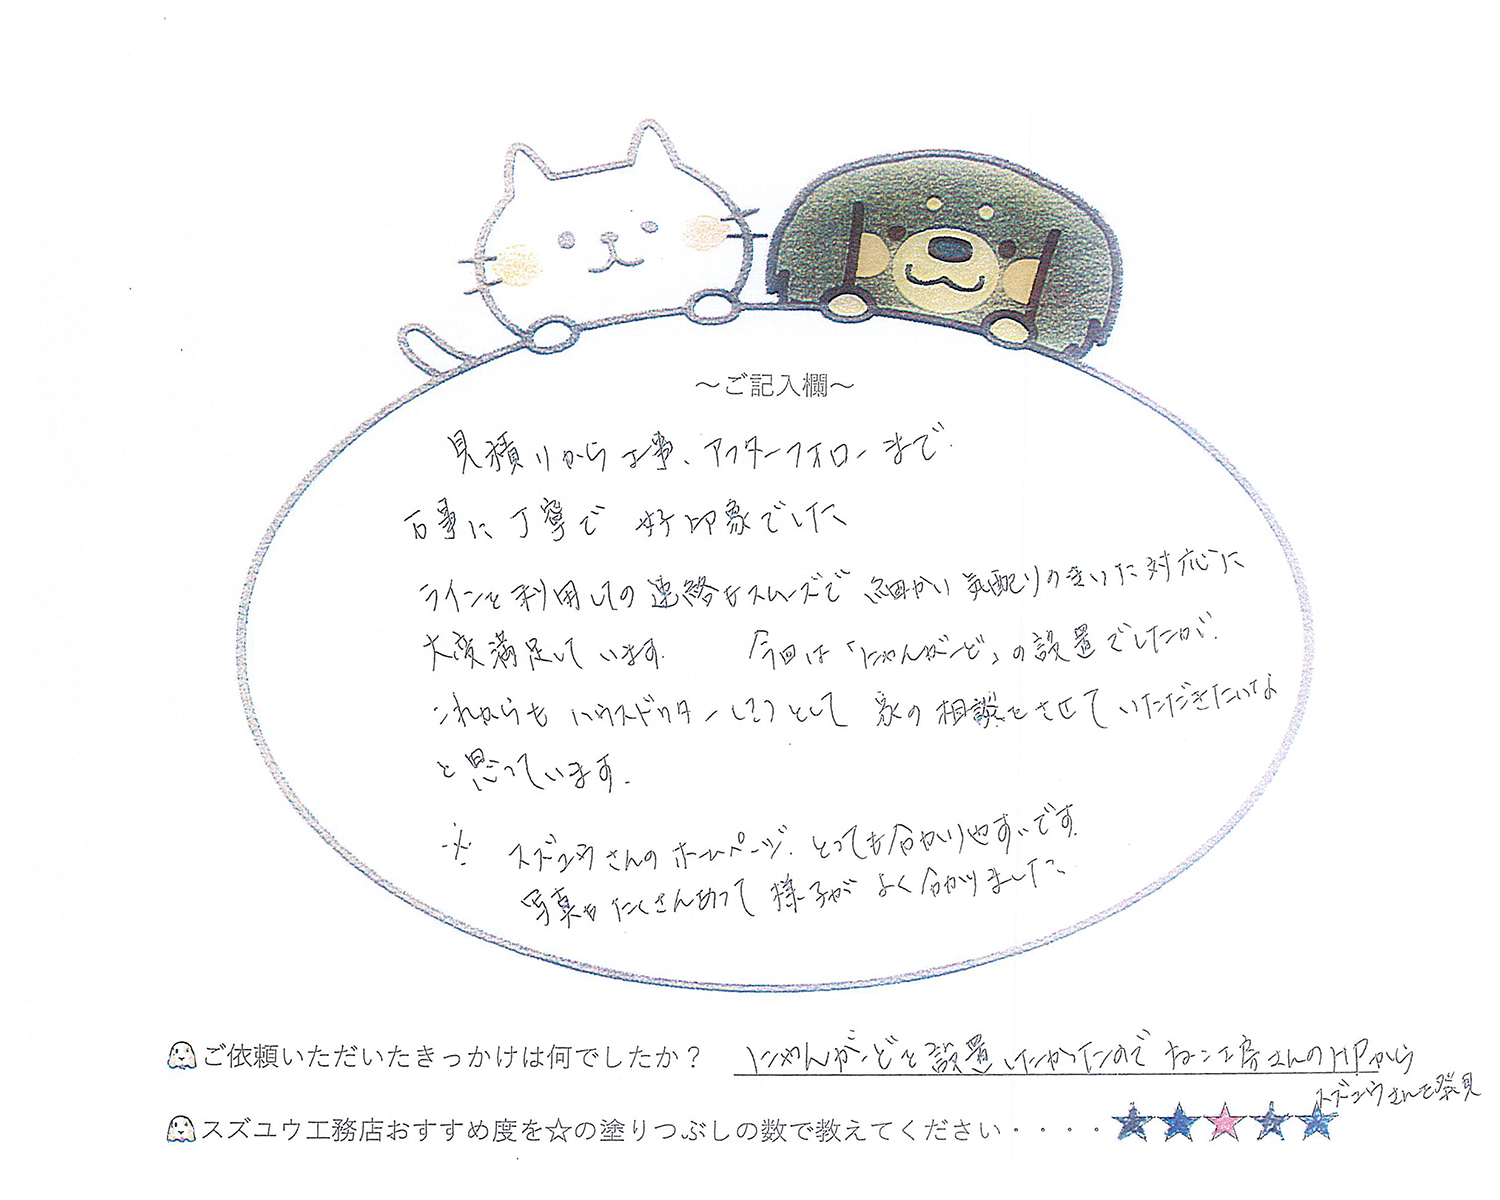 ～ご記入欄～
見積りから工事、アフターフォローまで
万事に丁寧で 好印象でした
ラインを利用しての連絡もスムーズで 細かい気配りのきいた対応に
大変満足しています。 今回は「にゃんがーど」の設置でしたが、
これからも ハウスドクター として 家の相談をさせていただきたいな
と思っています。
※ スズユウさんのホームページ、とっても分かりやすいです。
写真もたくさんあって 様子が よく分かりました。
ご依頼いただいたきっかけは何でしたか？ にゃんがーどを設置したかったので ねこ工房さんのHPから
スズユウさんを発見
スズユウ工務店おすすめ度を☆の塗りつぶしの数で教えてください・・・・★★★★★